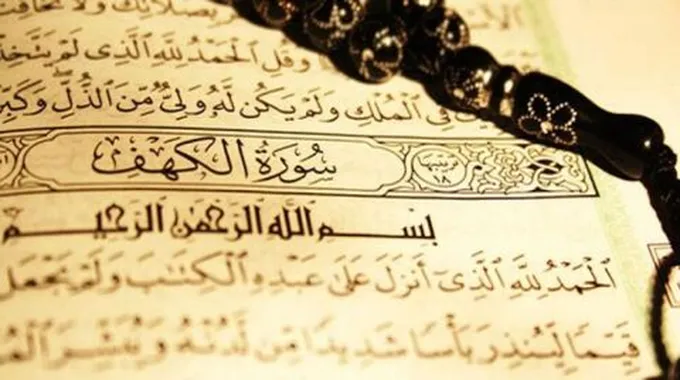 بِصَلَاتِكَ وَلَا تُخَافِتْ
وَقُلِ الْحَمْدُ لِلَّهِ الَّذِى لَمْ يَتَّخِذْ
فِى الْمُلْكِ وَلَمْ يَكُن لَّهُ وَلِىٌّ مِّنَ الذُّلِّ وَكَبِّرْ
سُورَةُ الكَهْفِ ترتيبها ١٨
بِسْمِ اللَّهِ الرَّحْمَٰنِ الرَّحِيمِ
الْحَمْدُ لِلَّهِ الَّذِى أَنزَلَ عَلَىٰ عَبْدِهِ الْكِتَٰبَ وَلَمْ يَجْعَل
قَيِّمًا لِّيُنذِرَ بَأْسًا شَدِيدًا مِّن لَّدُنْهُ وَيُبَشِّرَ